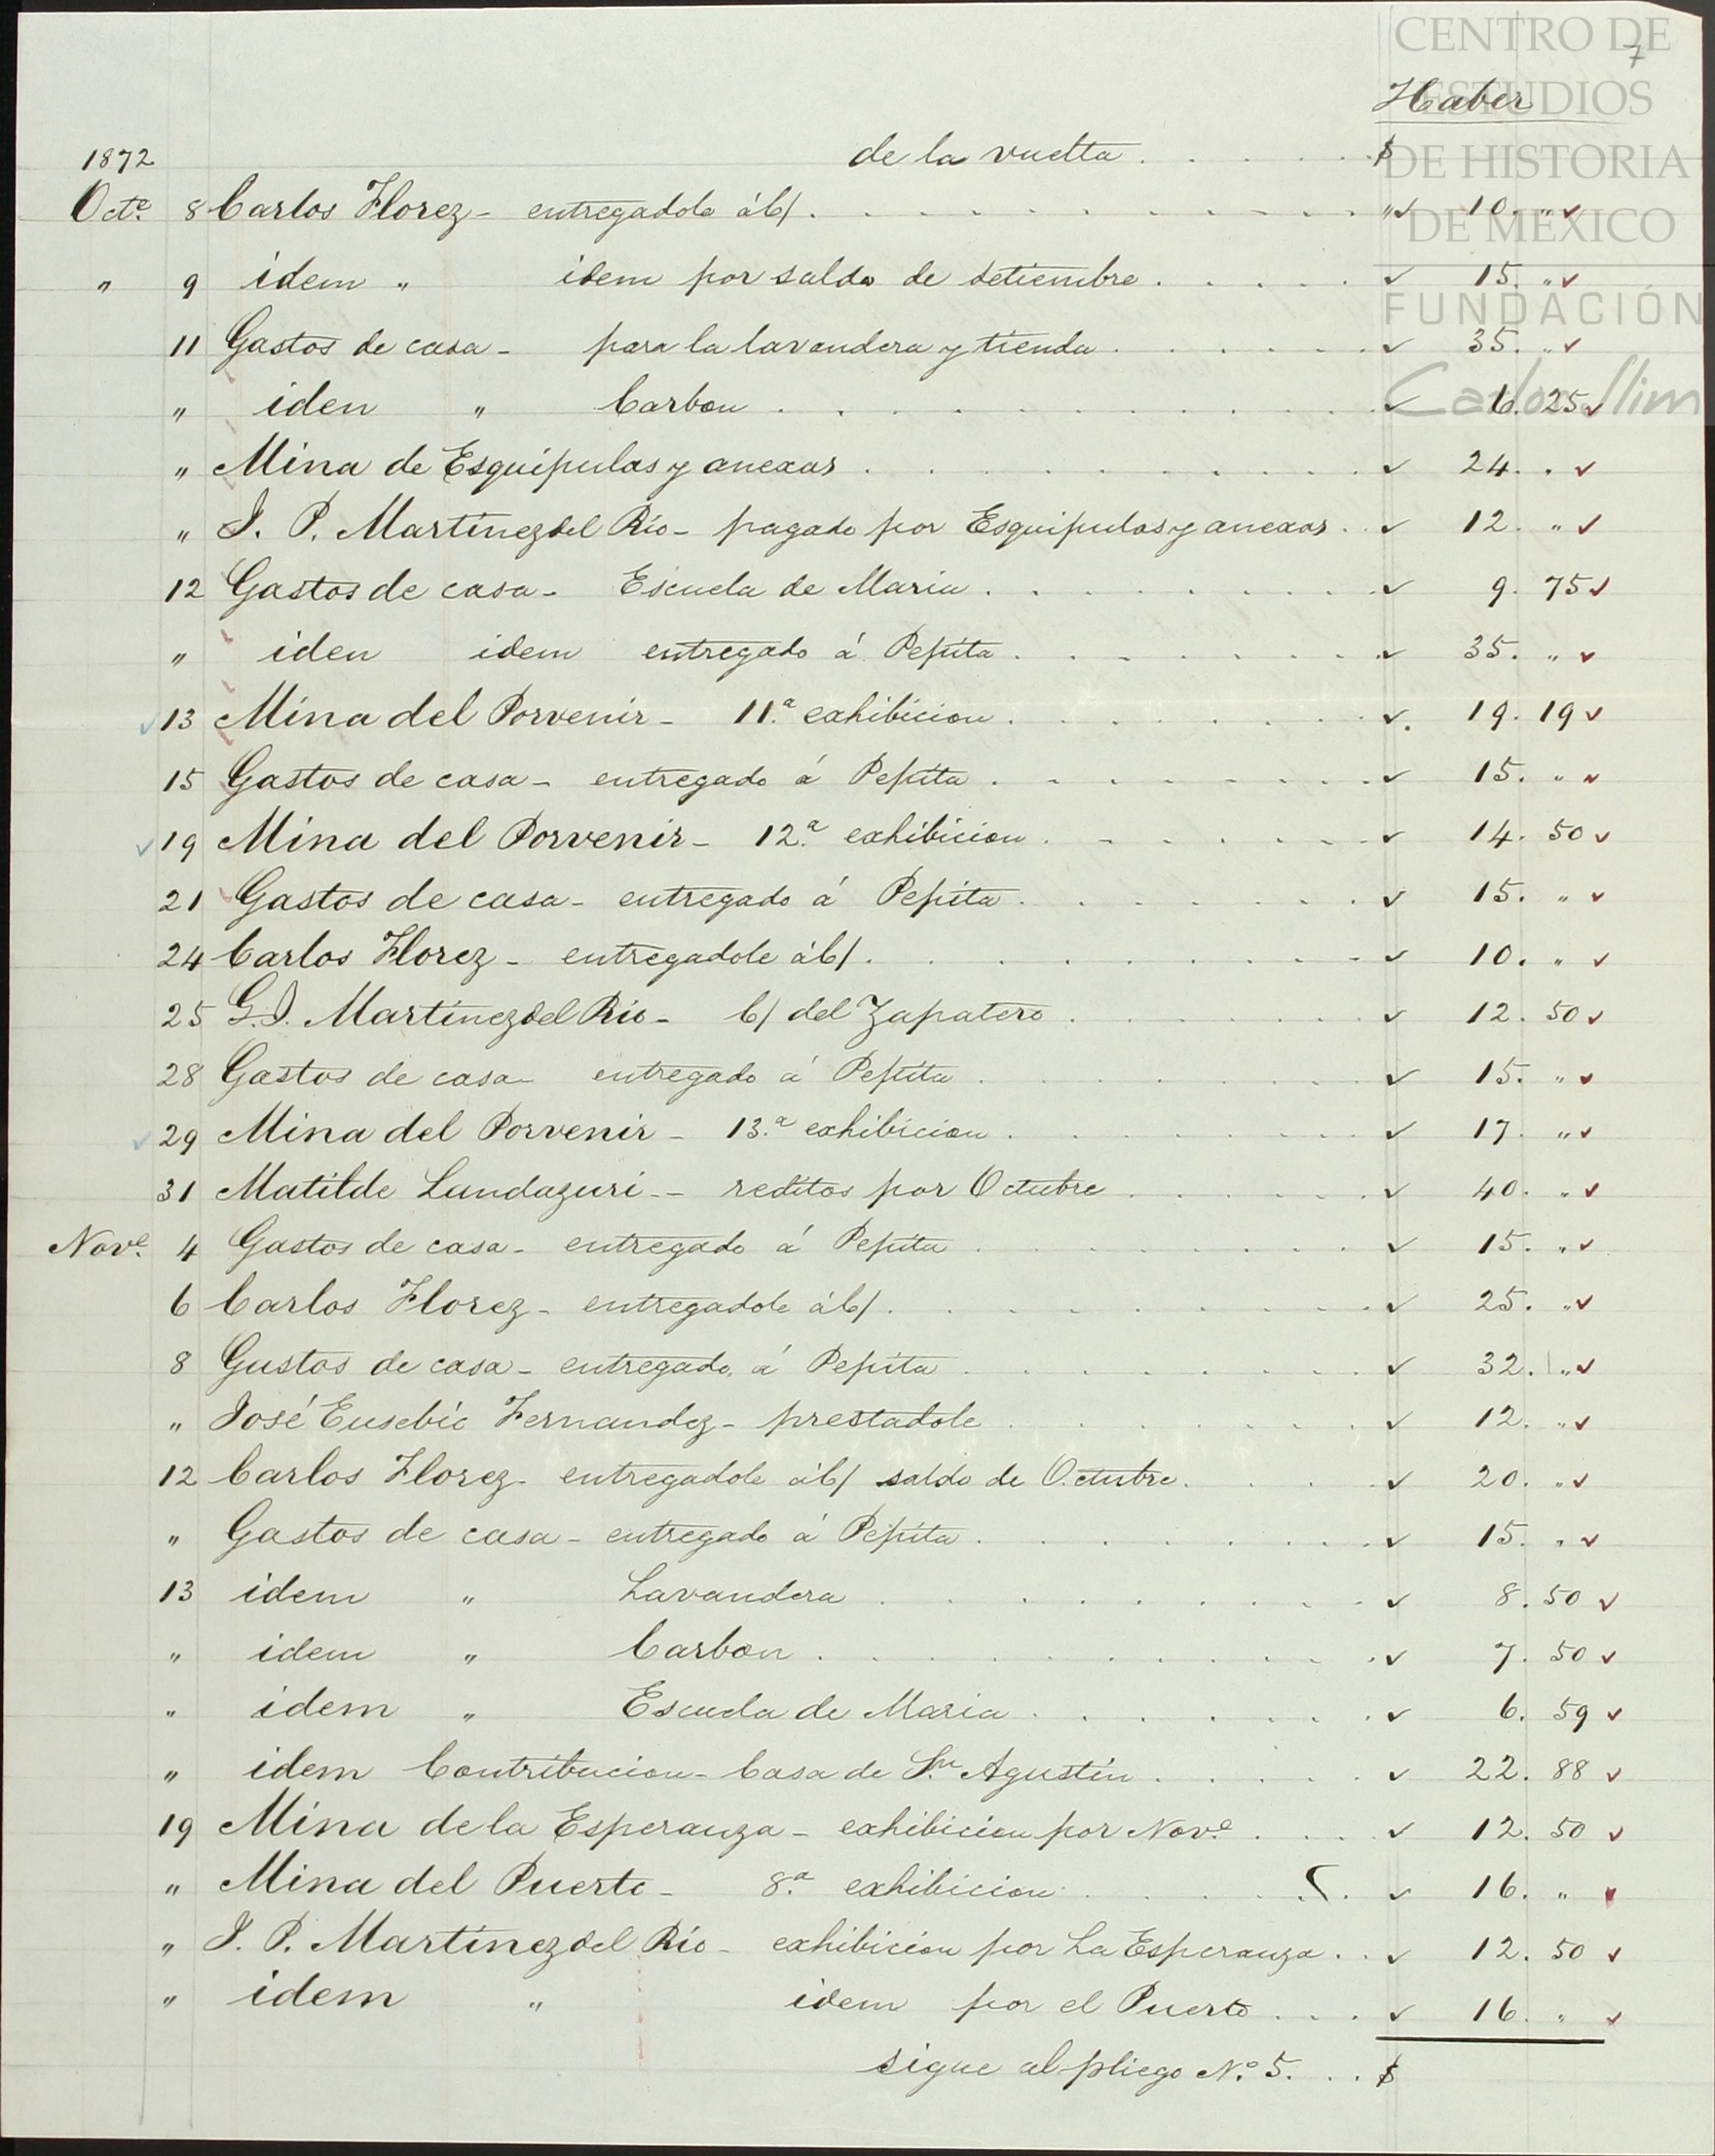 CENTRO DE
ESTUDIOS
DE HISTORIA
DE MÉXICO
FUNDACIÓN
Carlos Slim
7
Haber
1872 de la vuelta . . . . . $
Octe. 8 Carlos Florez - entregadole á c/ . . . . . " 10. "
" 9 idem " idem por saldo de setiembre . . . . . 15. "
11 Gastos de casa - para la lavandera y tienda . . . . . 35. "
" iden " Carbon . . . . . 6. 25
" Mina de Esquipulas y anexas . . . . . 24. "
" J. P. Martinez del Rio - pagado por Esquipulas y anexas . . 12. "
12 Gastos de casa - Escuela de Maria . . . . . 9. 75
" iden idem entregado á Pepita . . . . . 35. "
13 Mina del Porvenir - 11.a exhibicion . . . . . 19. 19
15 Gastos de casa - entregado á Pepita . . . . . 15. "
19 Mina del Porvenir - 12.a exhibicion . . . . . 14. 50
21 Gastos de casa - entregado á Pepita . . . . . 15. "
24 Carlos Florez - entregadole á c/ . . . . . 10. "
25 G. J. Martinez del Rio - c/ del Zapatero . . . . . 12. 50
28 Gastos de casa - entregado á Pepita . . . . . 15. "
29 Mina del Porvenir - 13.a exhibicion . . . . . 17. "
31 Matilde Landazuri - reditos por Octubre . . . . . 40. "
Nove. 4 Gastos de casa - entregado á Pepita . . . . . 15. "
6 Carlos Florez - entregadole á c/ . . . . . 25. "
8 Gastos de casa - entregado á Pepita . . . . . 32. "
" José Eusebio Fernandez - prestadole . . . . . 12. "
12 Carlos Florez - entregadole á c/ saldo de Octubre . . . . 20. "
" Gastos de casa - entregado á Pepita . . . . . 15. "
13 idem " Lavandera . . . . . 8. 50
" idem " Carbon . . . . . 7. 50
" idem " Escuela de Maria . . . . . 6. 59
" idem Contribucion - Casa de Sn. Agustin . . . . . 22. 88
19 Mina de la Esperanza - exhibicion por Nove. . . . . 12. 50
" Mina del Puerto - 8.a exhibicion . . . . . 16. "
" J. P. Martinez del Rio - exhibicion por La Esperanza . . 12. 50
" idem " idem por el Puerto . . . . 16. "
sigue al pliego No. 5. . . . $